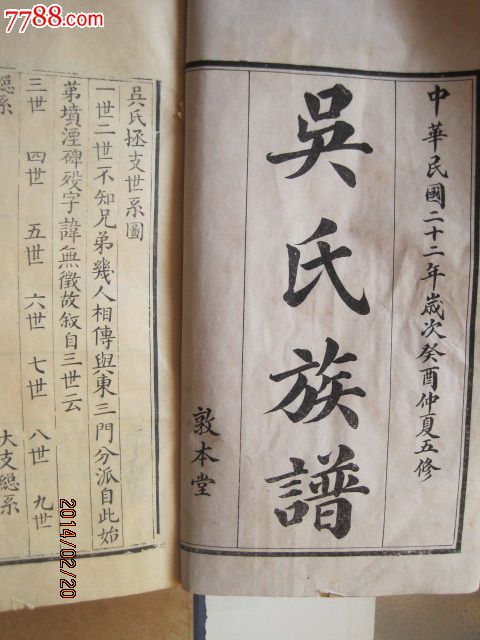 7788.com
中華民國二十二年歲次癸酉仲夏五修
吳氏族譜
敦本堂
吳氏拯支世系圖
一世二世不知兄弟幾人相傳與東三門分派自此始
弟墳湮碑歿字諱無徵故叙自三世云
三世 四世 五世 六世 七世 八世 九世
總系 大支總系
2014/02/20